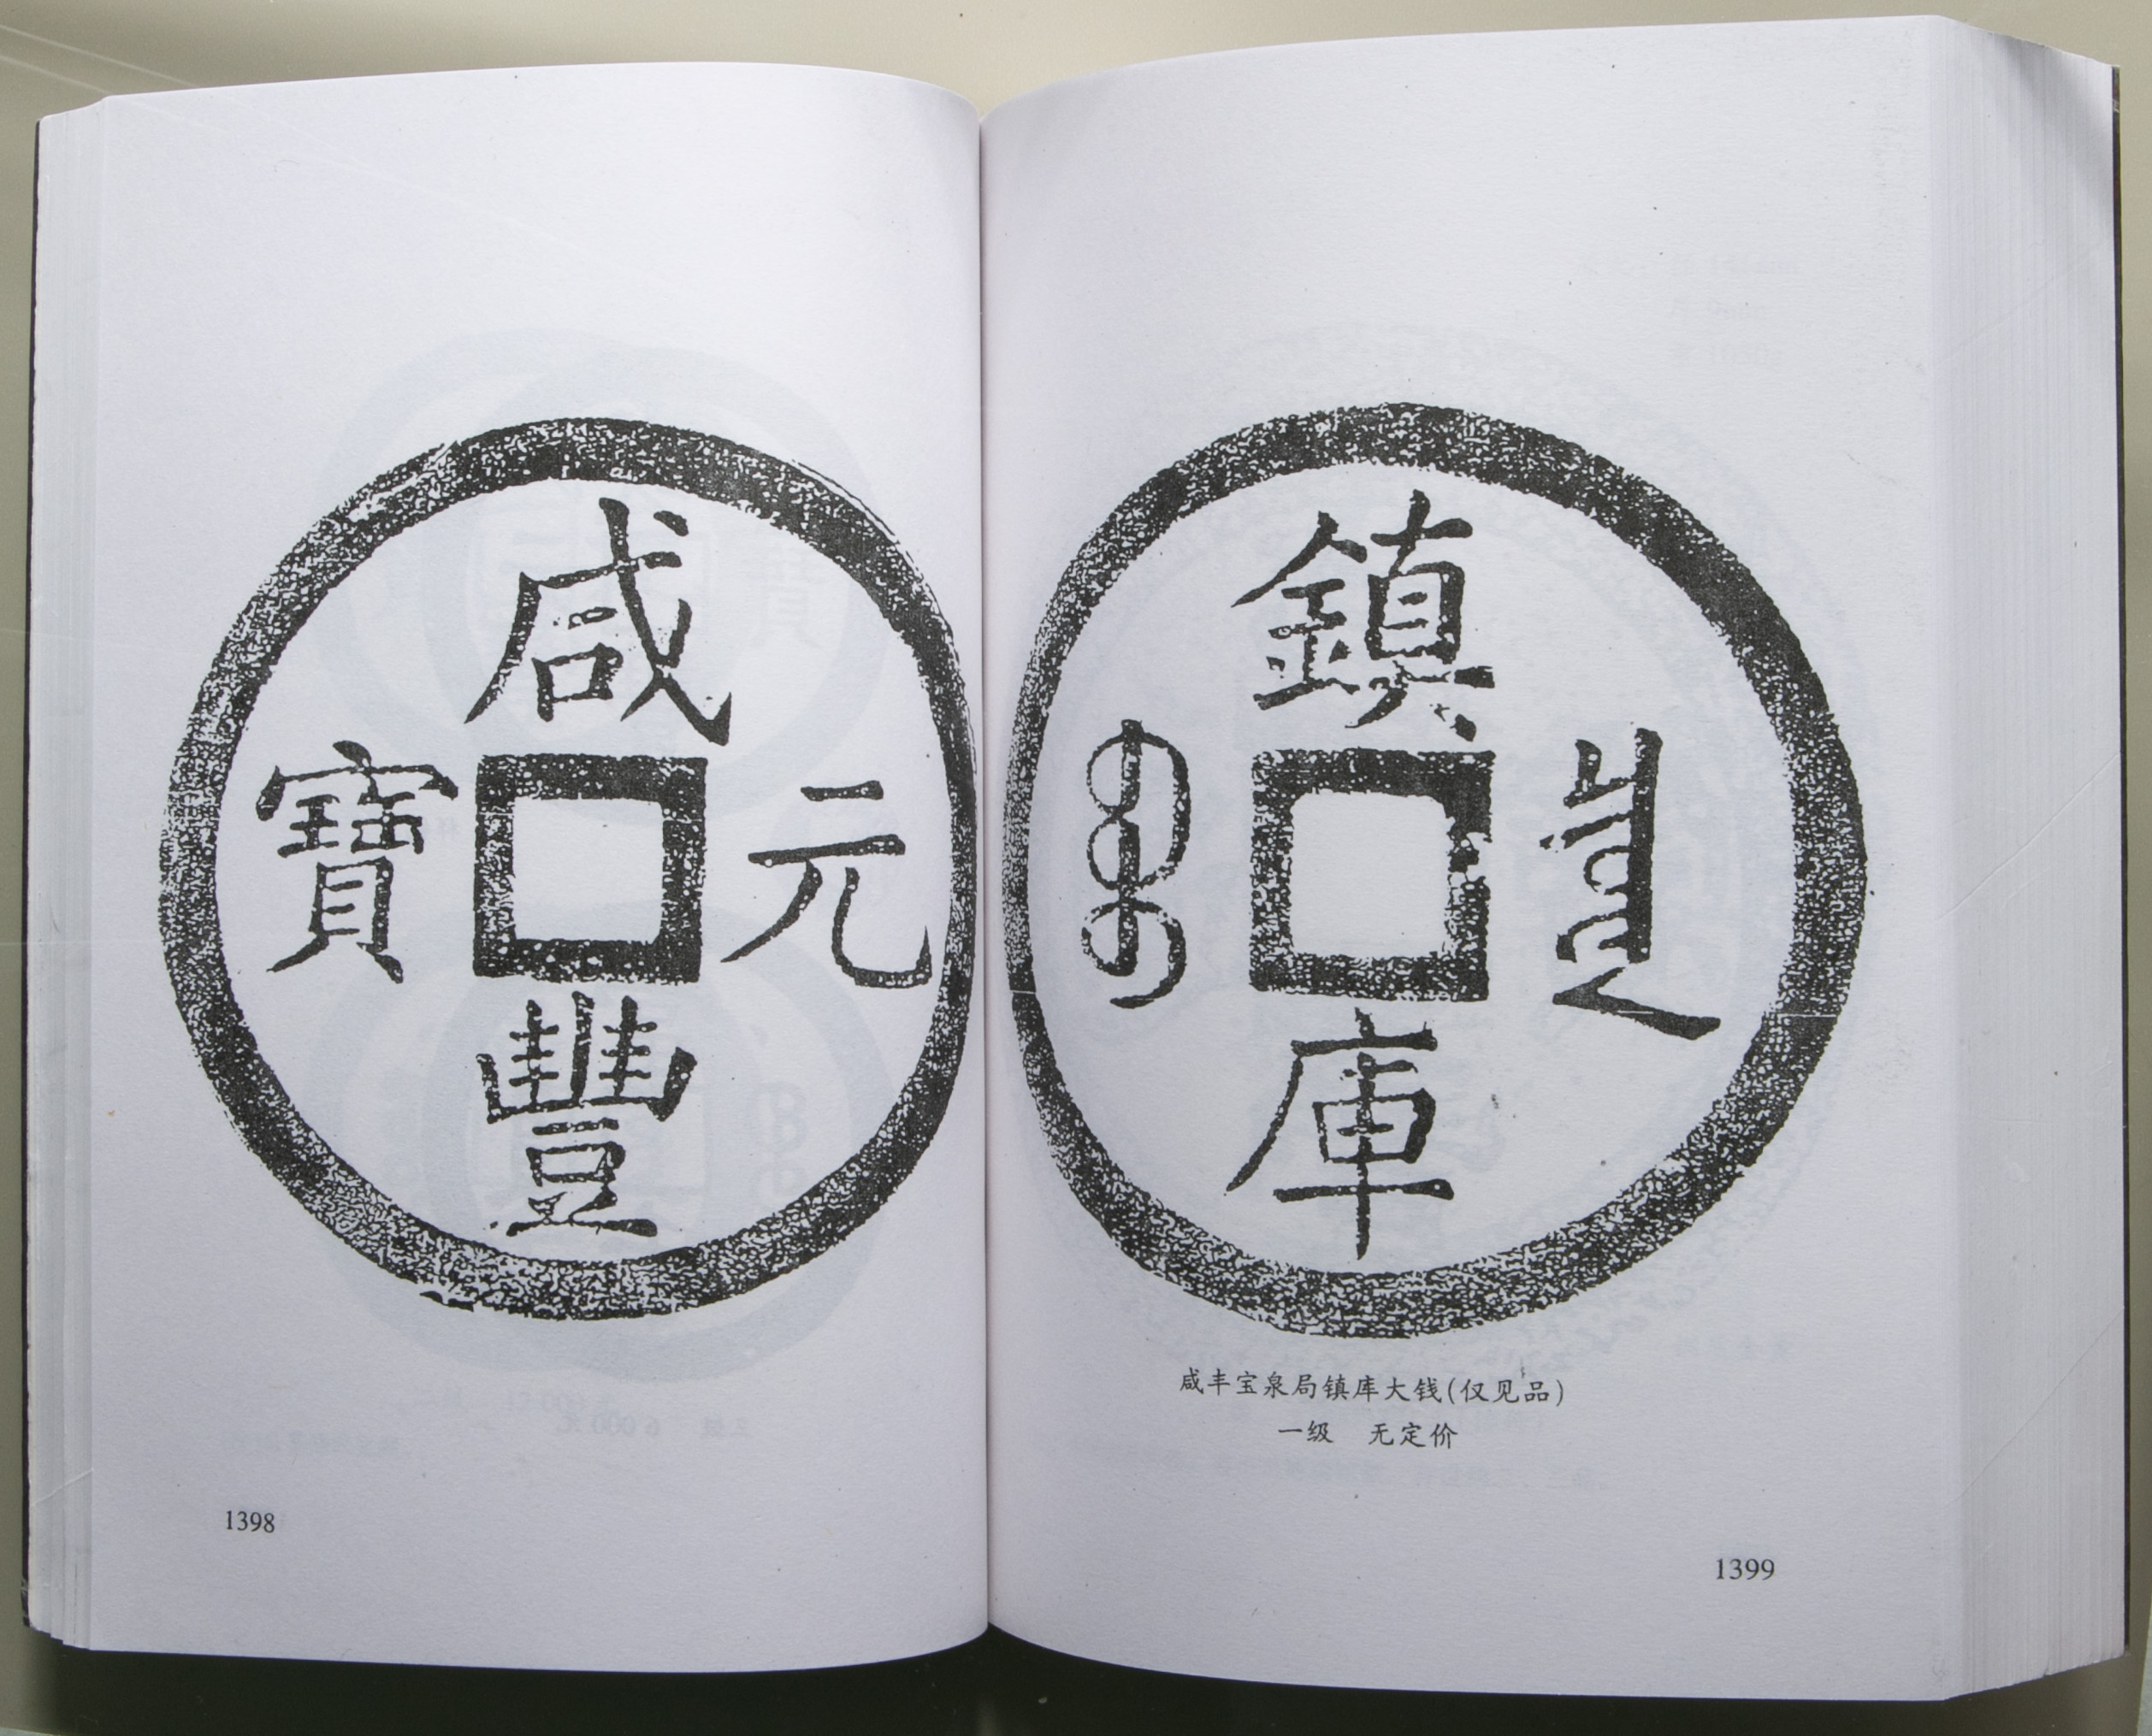 咸
寶 元
豐
1398
鎮
庫
咸丰宝泉局镇库大钱(仅见品)
一级 无定价
1399